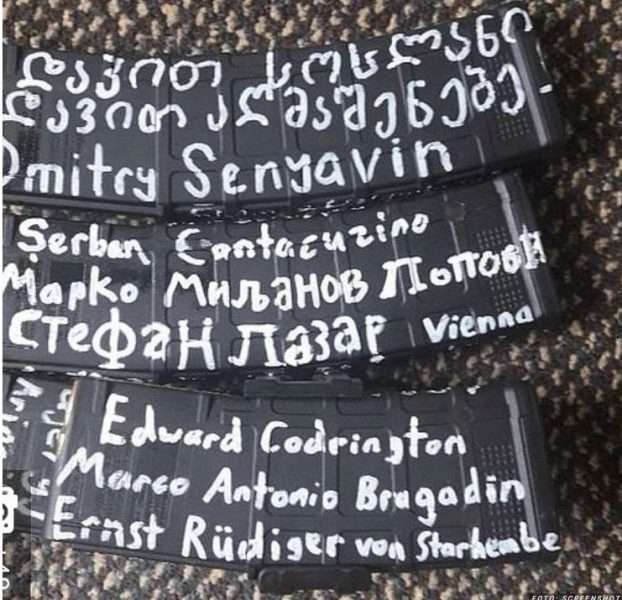 დავით სოსლანი
დავით აღმაშენებე
Dmitry Senyavin
Șerban Cantacuzino
Марко Миљанов Попови
Стефан Лазар Vienna
Edward Codrington
Marco Antonio Bragadin
Ernst Rüdiger von Starhembe
FOTO: SCREENSHOT